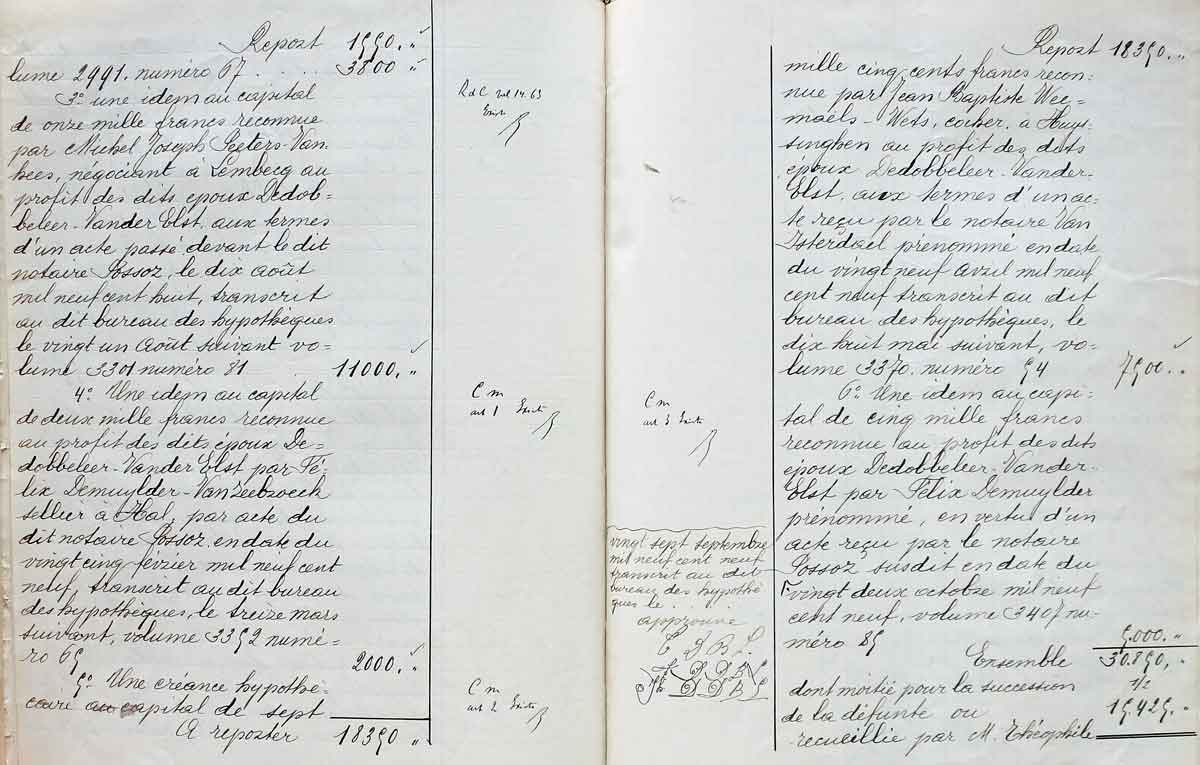 Report 1550. "
lume 2991. numéro 67 . . . . 3800 "
3° une idem au capital
de onze mille francs reconnue
par Michel Joseph Peeters-Van
hees, négociant à Lembecq au
profit des dits époux Dedob=
beleer-Vander Elst, aux termes
d'un acte passé devant le dit
notaire Possoz, le dix août
mil neuf cent huit, transcrit
au dit bureau des hypothèques
le vingt un Août suivant vo-
lume 3301 numéro 81 . 11000, "
4° Une idem au capital
de deux mille francs reconnue
au profit des dits époux De=
dobbeleer-Vander Elst par Fé-
lix Demuylder-Vanzeebroeck
sellier à Hal, par acte du
dit notaire Possoz en date du
vingt cinq février mil neuf cent
neuf, transcrit au dit bureau
des hypothèques, le treize mars
suivant, volume 3352 numé=
ro 65 2000, "
5° Une créance hypothé-
caire au capital de sept
A reporter 18350 "
R de C vol 14.63
C m
art 1
C m
art 2
C m
art 3
vingt sept septembre
mil neuf cent neuf
transcrit au dit
bureau des hypothè
ques le . . . .
approuvé
Report 18350. "
mille cinq-cents francs recon=
nue par Jean Baptiste Wee=
maels-Wets, cocher, à Huys-
singhen au profit des dits
époux Dedobbeleer-Vander-
Elst, aux termes d'un ac-
te reçu par le notaire Van
Isterdael prénommé en date
du vingt neuf avril mil neuf
cent neuf transcrit au dit
bureau des hypothèques, le
dix huit mai suivant, vo-
lume 3370. numéro 54 7500. "
6° Une idem au capi-
tal de cinq mille francs
reconnue au profit des dits
époux Dedobbeleer-Vander-
Elst par Félix Demuylder
prénommé, en vertu d'un
acte reçu par le notaire
Possoz susdit en date du
vingt deux octobre mil neuf
cent neuf, volume 3407 nu-
méro 85 5.000. "
Ensemble 30.850, "
dont moitié pour la succession 1/2
de la défunte ou 15,425. "
recueillie par M. Théophile